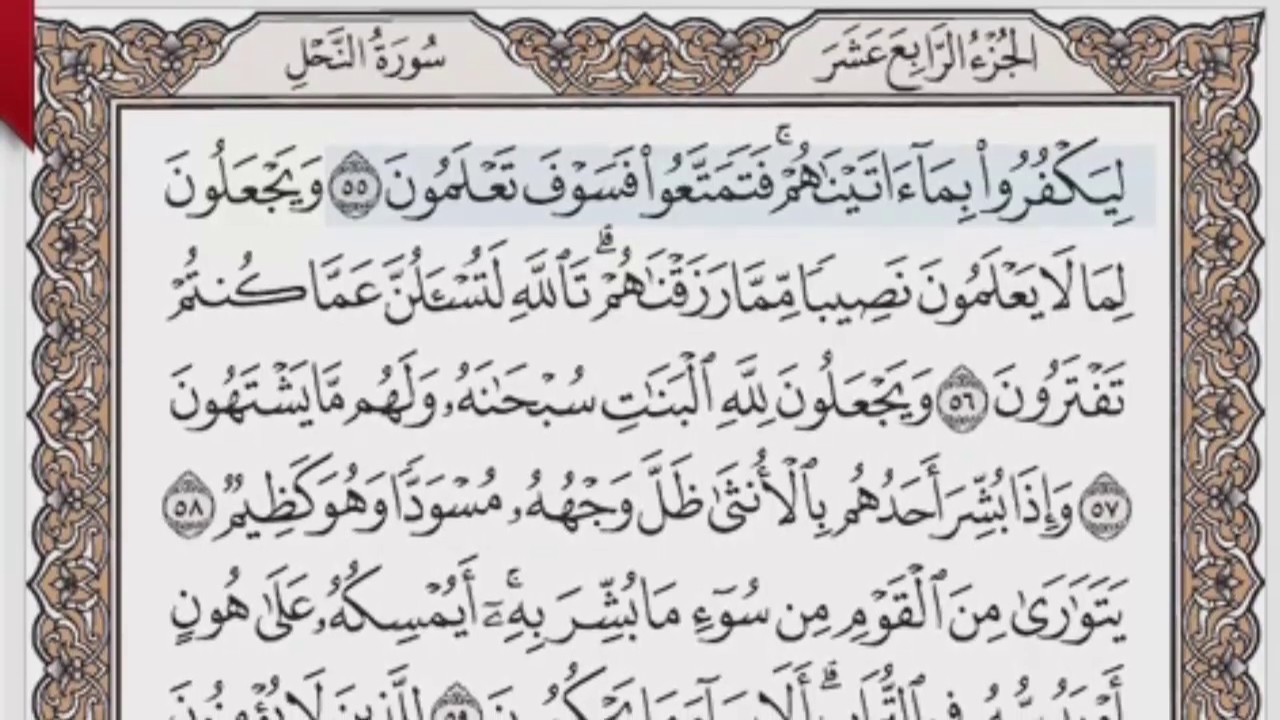 الجُزْءُ الرَّابِعَ عَشَرَ
سُورَةُ النَّحْلِ
لِيَكْفُرُوا۟ بِمَآ ءَاتَيْنَٰهُمْ ۚ فَتَمَتَّعُوا۟ فَسَوْفَ تَعْلَمُونَ ٥٥ وَيَجْعَلُونَ
لِمَا لَا يَعْلَمُونَ نَصِيبًا مِّمَّا رَزَقْنَٰهُمْ ۗ تَٱللَّهِ لَتُسْـَٔلُنَّ عَمَّا كُنتُمْ
تَفْتَرُونَ ٥٦ وَيَجْعَلُونَ لِلَّهِ ٱلْبَنَٰتِ سُبْحَٰنَهُۥ وَلَهُم مَّا يَشْتَهُونَ
٥٧ وَإِذَا بُشِّرَ أَحَدُهُم بِٱلْأُنثَىٰ ظَلَّ وَجْهُهُۥ مُسْوَدًّا وَهُوَ كَظِيمٌ ٥٨
يَتَوَٰرَىٰ مِنَ ٱلْقَوْمِ مِن سُوٓءِ مَا بُشِّرَ بِهِۦٓ ۚ أَيُمْسِكُهُۥ عَلَىٰ هُونٍ